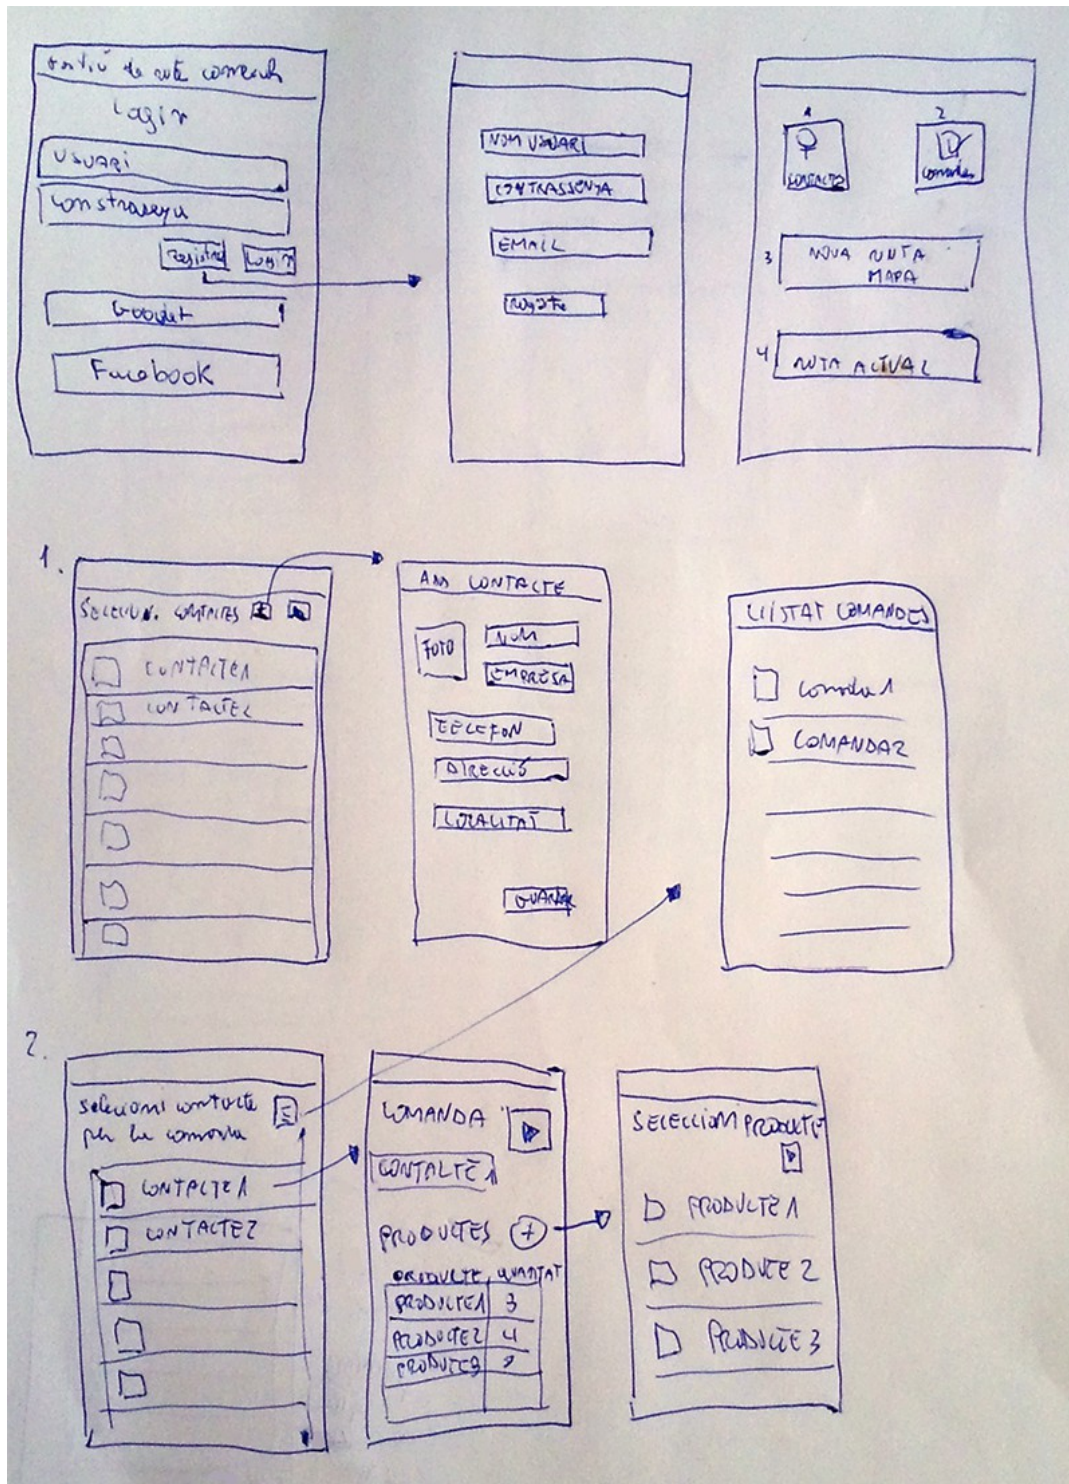 Gestió de ruta comercials
Login
USUARI
Constrasenya
Registre Login
Google+
Facebook
NOM USUARI
CONTRASSENYA
EMAIL
Registre
1
CONTACTES
2
Comandes
3 NOVA RUTA
MAPA
4 RUTA ACTUAL
1.
SELECCION. CONTACTES
CONTACTE1
CONTACTE2
ADD CONTACTE
FOTO
NOM
EMPRESA
TELEFON
DIRECCIÓ
LOCALITAT
GUARDAR
LLISTAT COMANDES
Comanda1
COMANDA2
2.
Seleccioni contacte
per la comanda
CONTACTE1
CONTACTE2
COMANDA
CONTACTE1
PRODUCTES +
PRODUCTE QUANTITAT
PRODUCTE1 3
PRODUCTE2 4
PRODUCTE3
SELECCIONI PRODUCTE
PRODUCTE1
PRODUCTE 2
PRODUCTE3